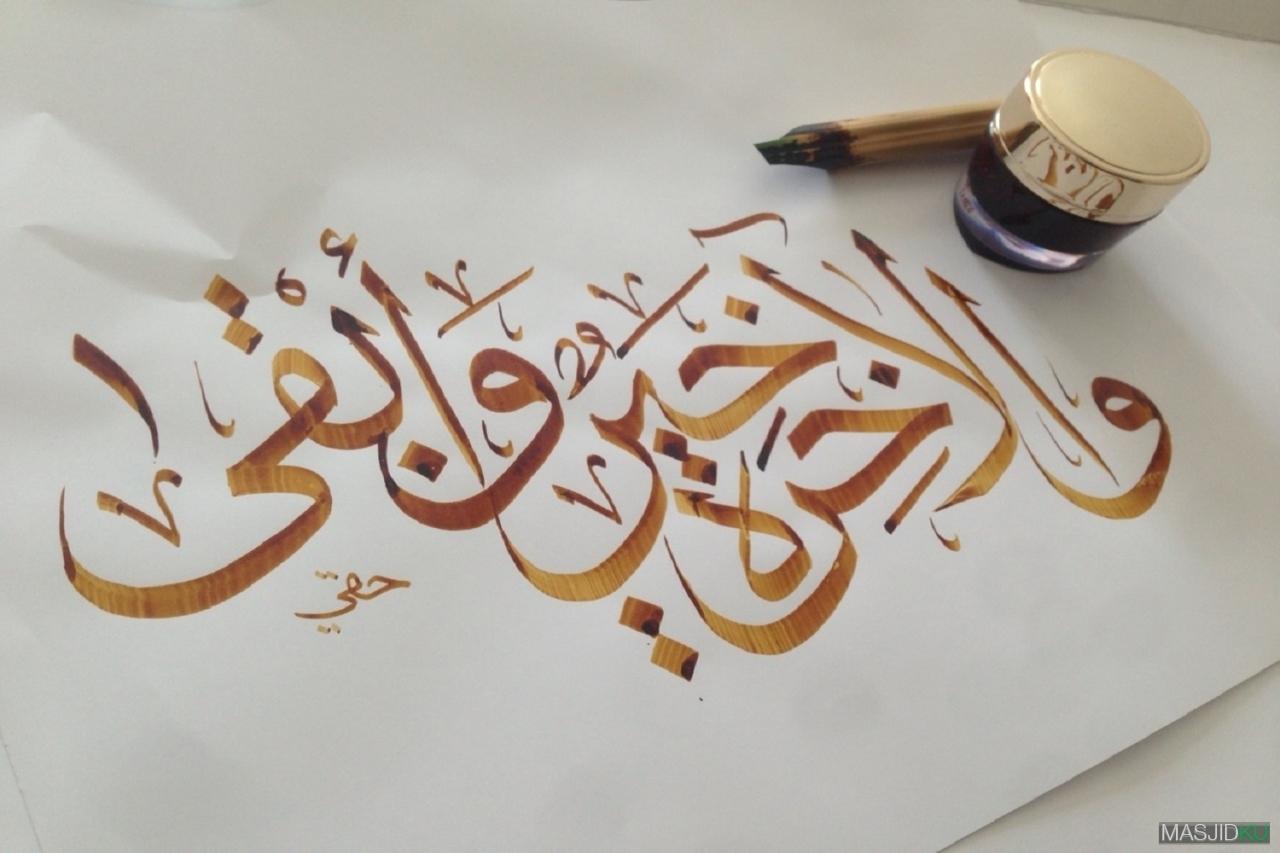 والآخرة خير وأبقى
حقي
MASJIDKU